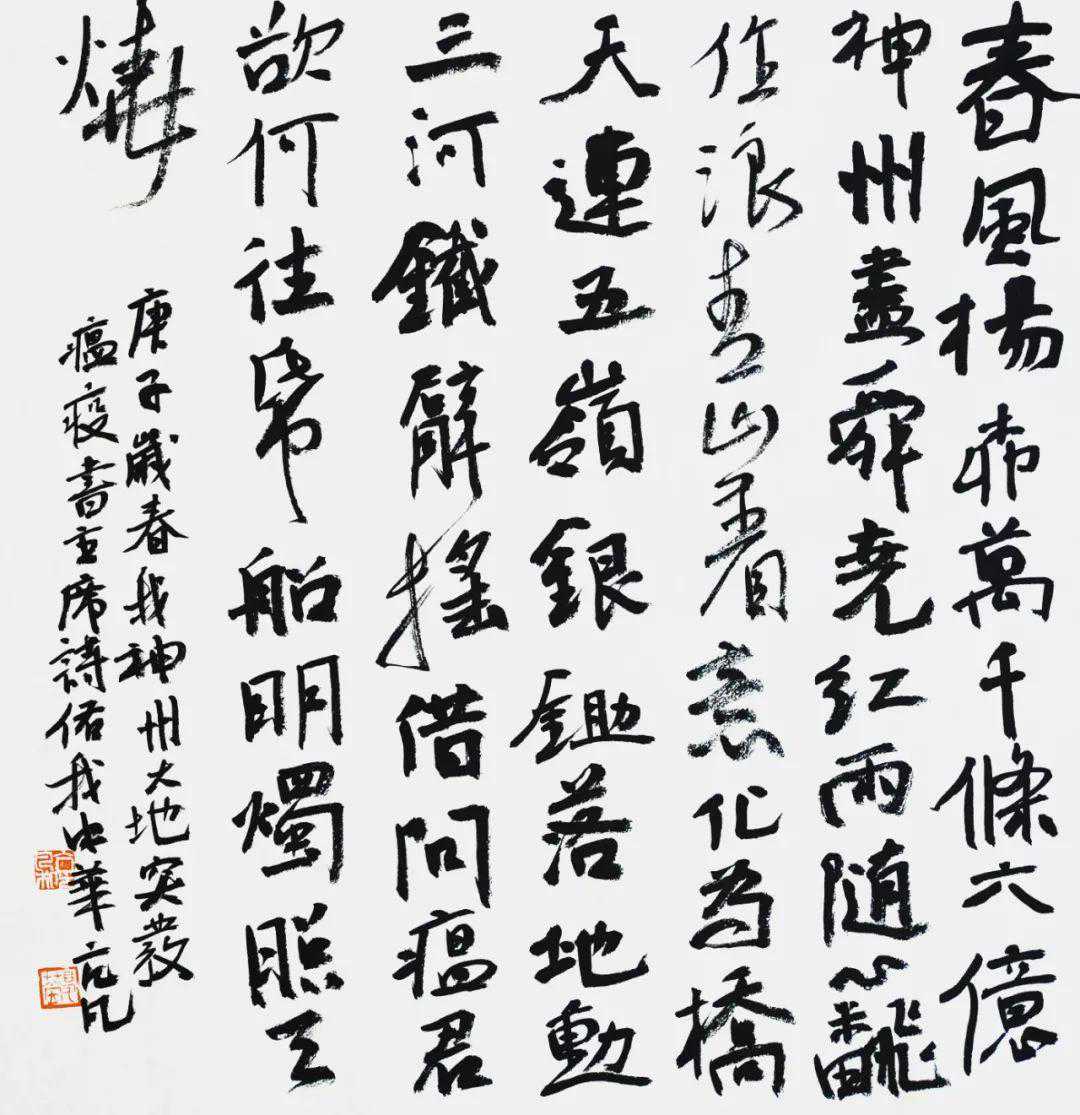 春風楊柳萬千條六億
神州盡舜堯紅雨随心飜
作浪青山着意化為橋
天連五嶺銀鋤落地動
三河鐵臂搖借問瘟君
欲何往帋船明燭照天
燒
庚子歲春我神州大地突發
瘟疫書主席詩佑我中華